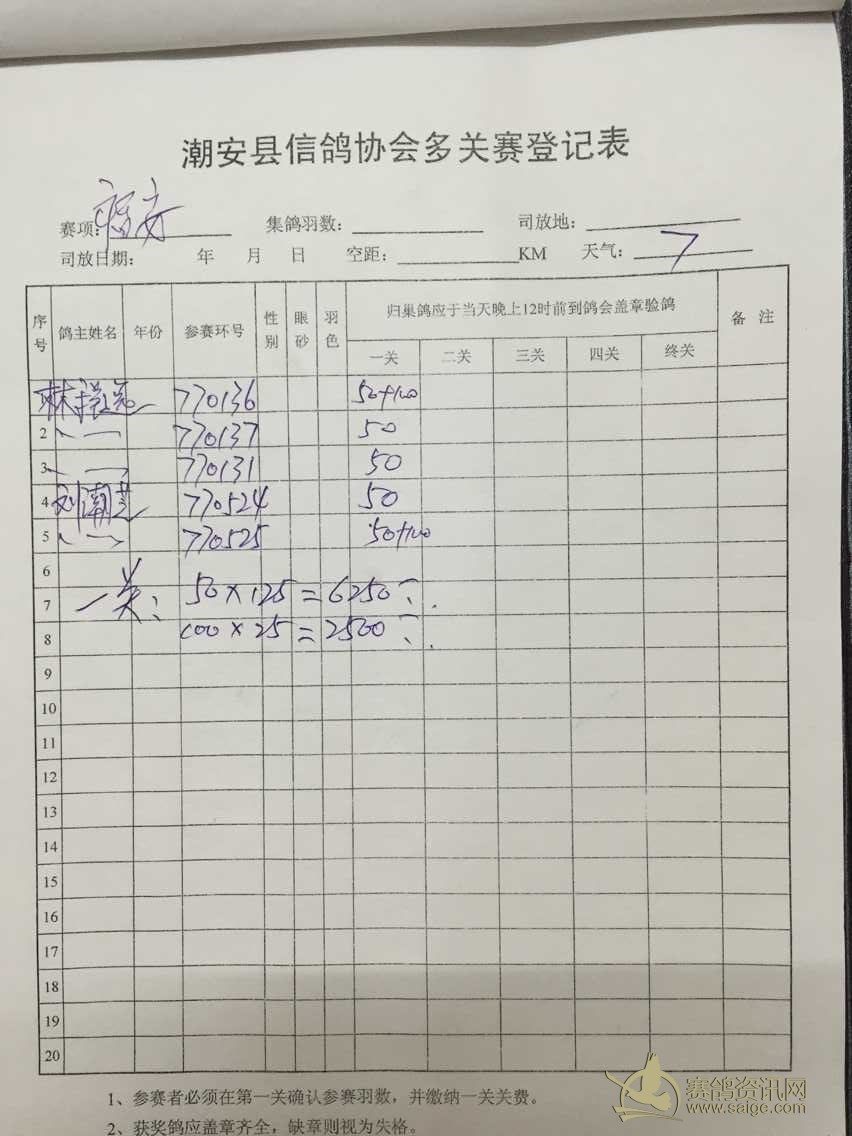 潮安县信鸽协会多关赛登记表
赛项: 福安 集鸽羽数: 司放地:
司放日期: 年 月 日 空距: KM 天气: 7
序号 鸽主姓名 年份 参赛环号 性别 眼砂 羽色 归巢鸽应于当天晚上12时前到鸽会盖章验鸽 备 注
一关 二关 三关 四关 终关
林 770136 50+100
2 770137 50
3 770131 50
4 刘潮 770524 50
5 770525 50+100
6
7 一关: 50×125=6250
8 100×25=2500
9
10
11
12
13
14
15
16
17
18
19
20
1、参赛者必须在第一关确认参赛羽数，并缴纳一关关费。
2、获奖鸽应盖章齐全，缺章则视为失格。
赛鸽资讯网
www.saige.com